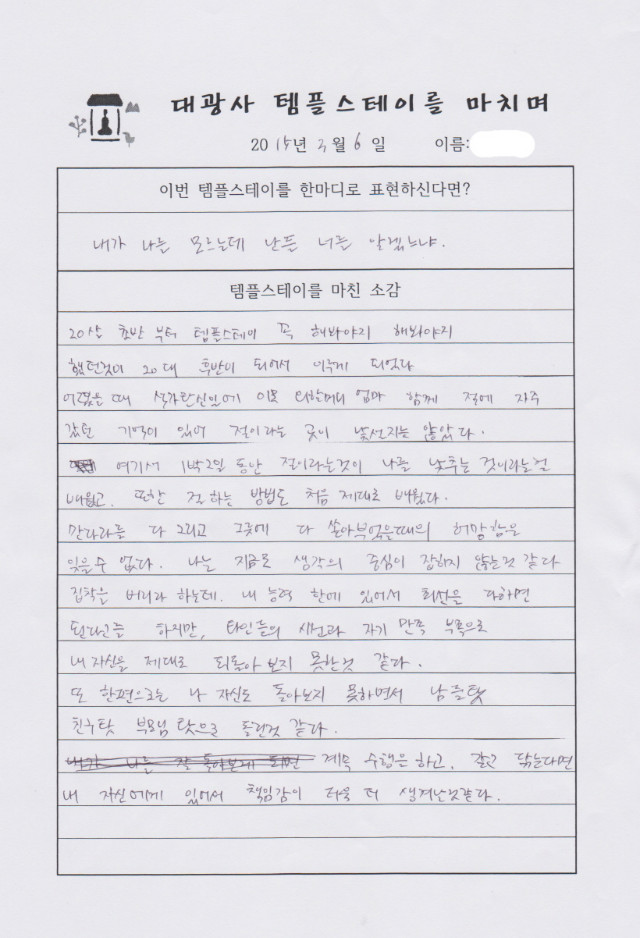 대광사 템플스테이를 마치며
2015년 3월 6일 이름:
이번 템플스테이를 한마디로 표현하신다면?
내가 나를 모르는데 난들 너를 알겠느냐.
템플스테이를 마친 소감
20살 초반부터 템플스테이 꼭 해봐야지 해봐야지
했던것이 20대 후반이 되어서 이루게 되었다
어렸을 때 석가탄신일에 이모 외할머니 엄마 함께 절에 자주
갔던 기억이 있어 절이라는 곳이 낯선지는 않았다.
여기서 1박2일 동안 절이라는것이 나를 낮추는 것이라는걸
배웠고. 또한 절 하는 방법도 처음 제대로 배웠다.
만다라를 다 그리고 그곳에 다 쏟아부었을때의 허망함을
잊을수 없다. 나는 지금도 생각의 중심이 잡히지 않는것 같다
집착을 버리라 하는데. 내 능력 한에 있어서 최선을 다하면
된다고들 하지만, 타인들의 시선과 자기 만족 부족으로
내 자신을 제대로 되돌아 보지 못한것 같다.
또 한편으로는 나 자신도 돌아보지 못하면서 남을탓
친구탓 부모님 탓으로 돌린것 같다.
계속 수행을 하고, 갈고 닦는다면
내 자신에게 있어서 책임감이 더욱 더 생겨난것같다.